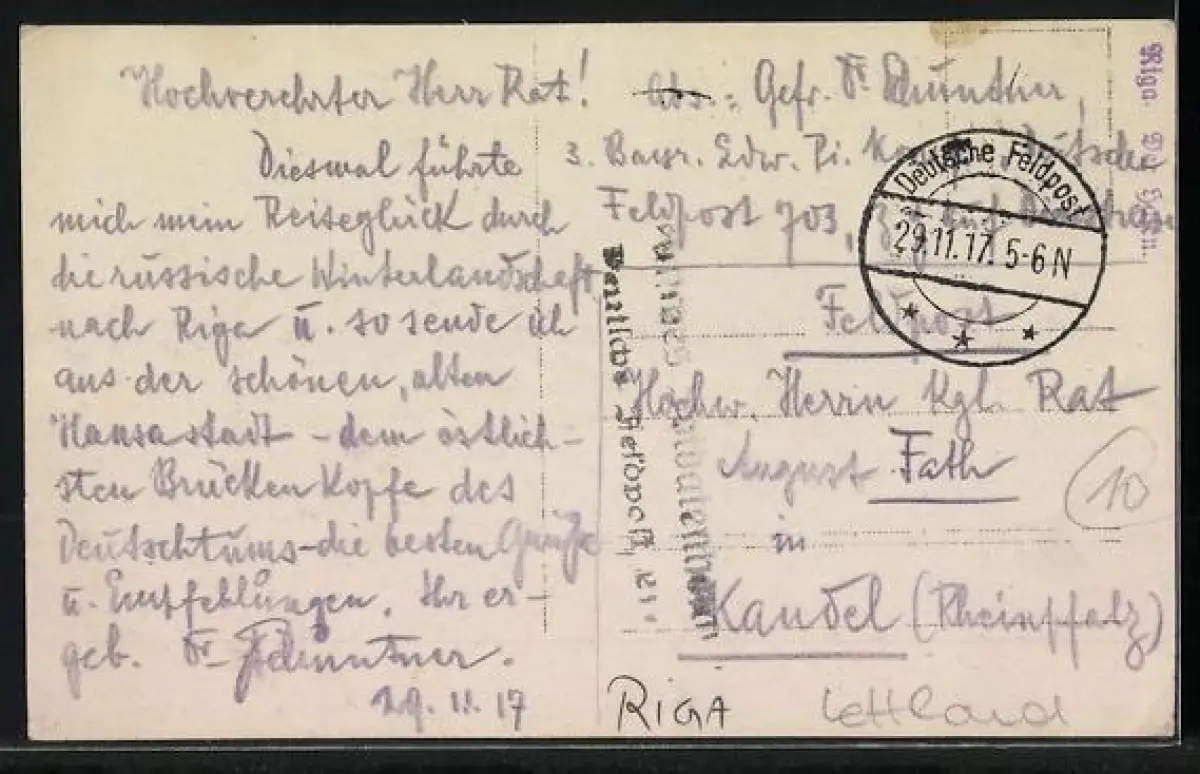 Hochverehrter Herr Rat!
Diesmal führte
mich mein Reiseglück durch
die russische Winterlandschaft
nach Riga u. so sende ich
aus der schönen, alten
Hansastadt – dem östlich-
sten Brückenkopfe des
Deutschtums – die besten Grüße
u. Empfehlungen. Ihr er-
geb. Dr
29.11.17
Abs.: Gefr. Dr
3. Bayr. Ldw. Pi. Deutsche
Feldpost 703,
Deutsche Feldpost
29.11.17. 5-6 N
Feldpost
Hochw. Herrn Kgl. Rat
August Fath
in
Kandel (Rheinpfalz)
10
Deutsche Feldpost
Riga.
RIGA
Lettland